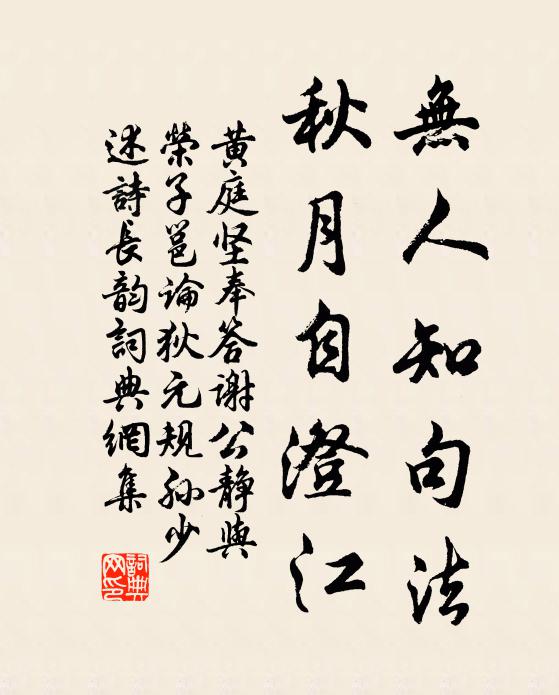 無人知句法
秋月自澄江
黄庭坚奉答谢公静與
榮子邕論狄元規孙少
述詩長韵詞典網集
詞典
网印